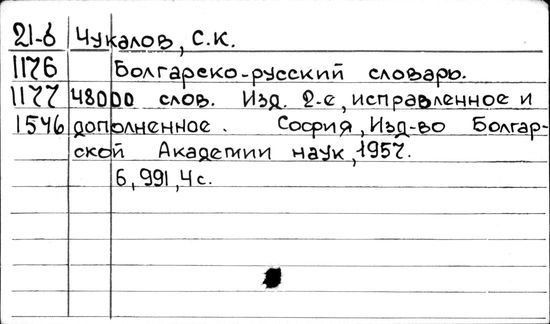 21-б Чукалов, С.К.
1176 Болгареко-русский словарь.
1177 48000 слов. Изд. 2-е, исправленное и
1546 дополненное. София, Изд-во Болгар-
ской Академии наук, 1957.
6, 991, 4 с.